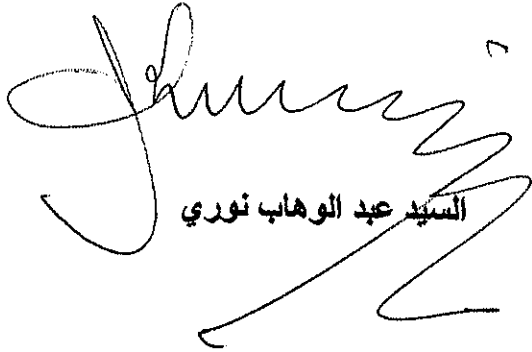 السيد عبد الوهاب نوري